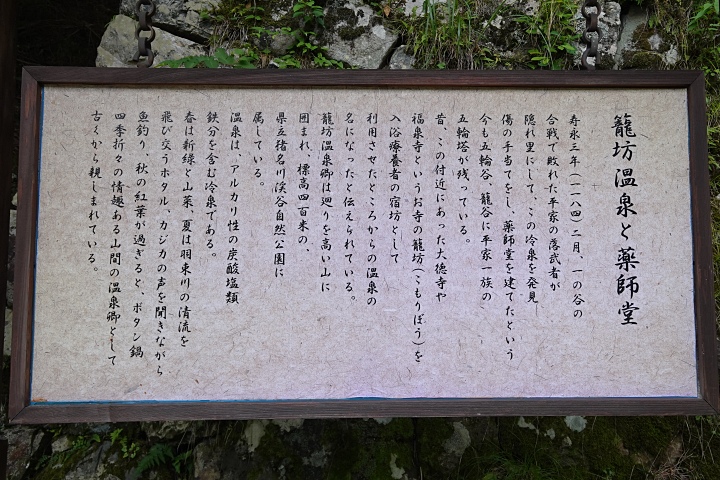 籠坊温泉と薬師堂
寿永三年(一一八四)二月、一の谷の
合戦で敗れた平家の落武者が
隠れ里にして、この冷泉を発見
傷の手当てをし、薬師堂を建てたという
今も五輪谷、籠谷に平家一族の
五輪塔が残っている。
昔、この付近にあった大徳寺や
福泉寺というお寺の籠坊(こもりぼう)を
入浴療養者の宿坊として
利用させたところからの温泉の
名になったと伝えられている。
籠坊温泉郷は廻りを高い山に
囲まれ、標高四百米の、
県立猪名川渓谷自然公園に
属している。
温泉は、アルカリ性の炭酸塩類
鉄分を含む冷泉である。
春は新緑と山菜、夏は羽束川の清流を
飛び交うホタル、カジカの声を聞きながら
魚釣り、秋の紅葉が過ぎると、ボタン鍋
四季折々の情趣ある山間の温泉郷として
古くから親しまれている。